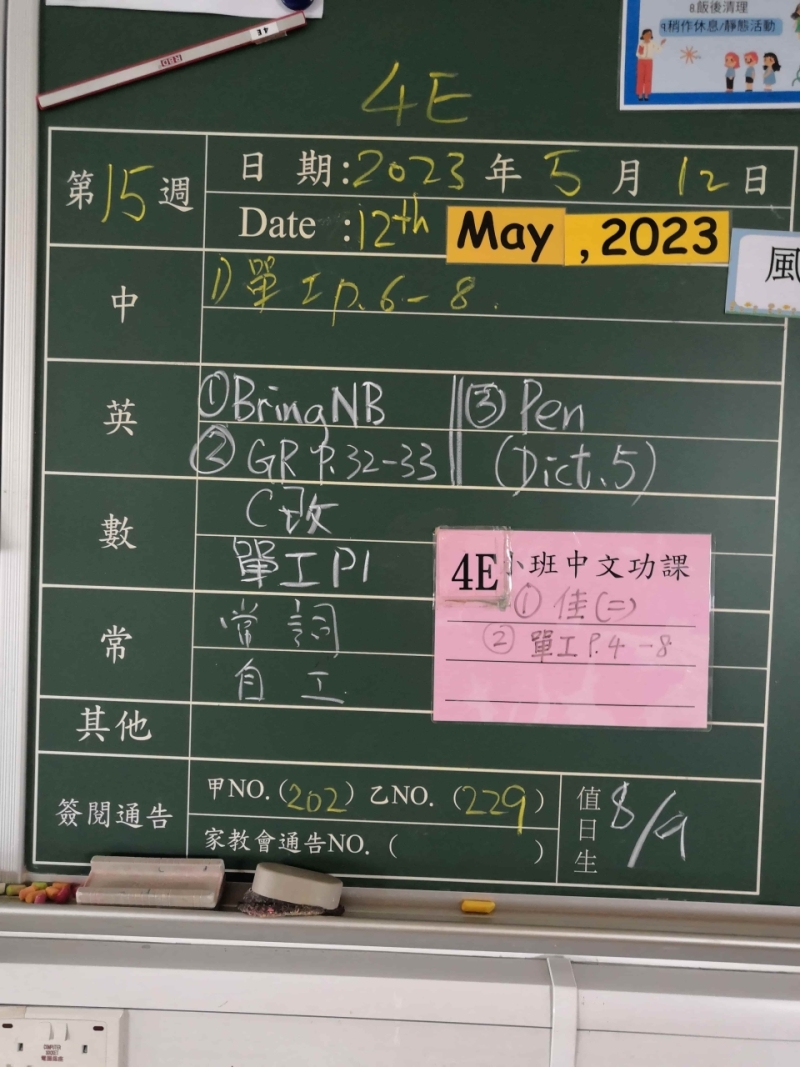 8.飯後清理
9.稍作休息/靜態活動
4E
4E
第15週
日期:2023年5月12日
Date :12th May , 2023
風
中
1) 單工 p.6-8.
英
① Bring NB
② GR P.32-33
③ Pen
(Dict.5)
數
C改
單工P1
4E小班中文功課
① 佳(二)
② 單工P.4-8
常
常詞
自工
其他
簽閱通告
甲NO.(202) 乙NO.(229)
家教會通告NO.( )
值日生
8/9